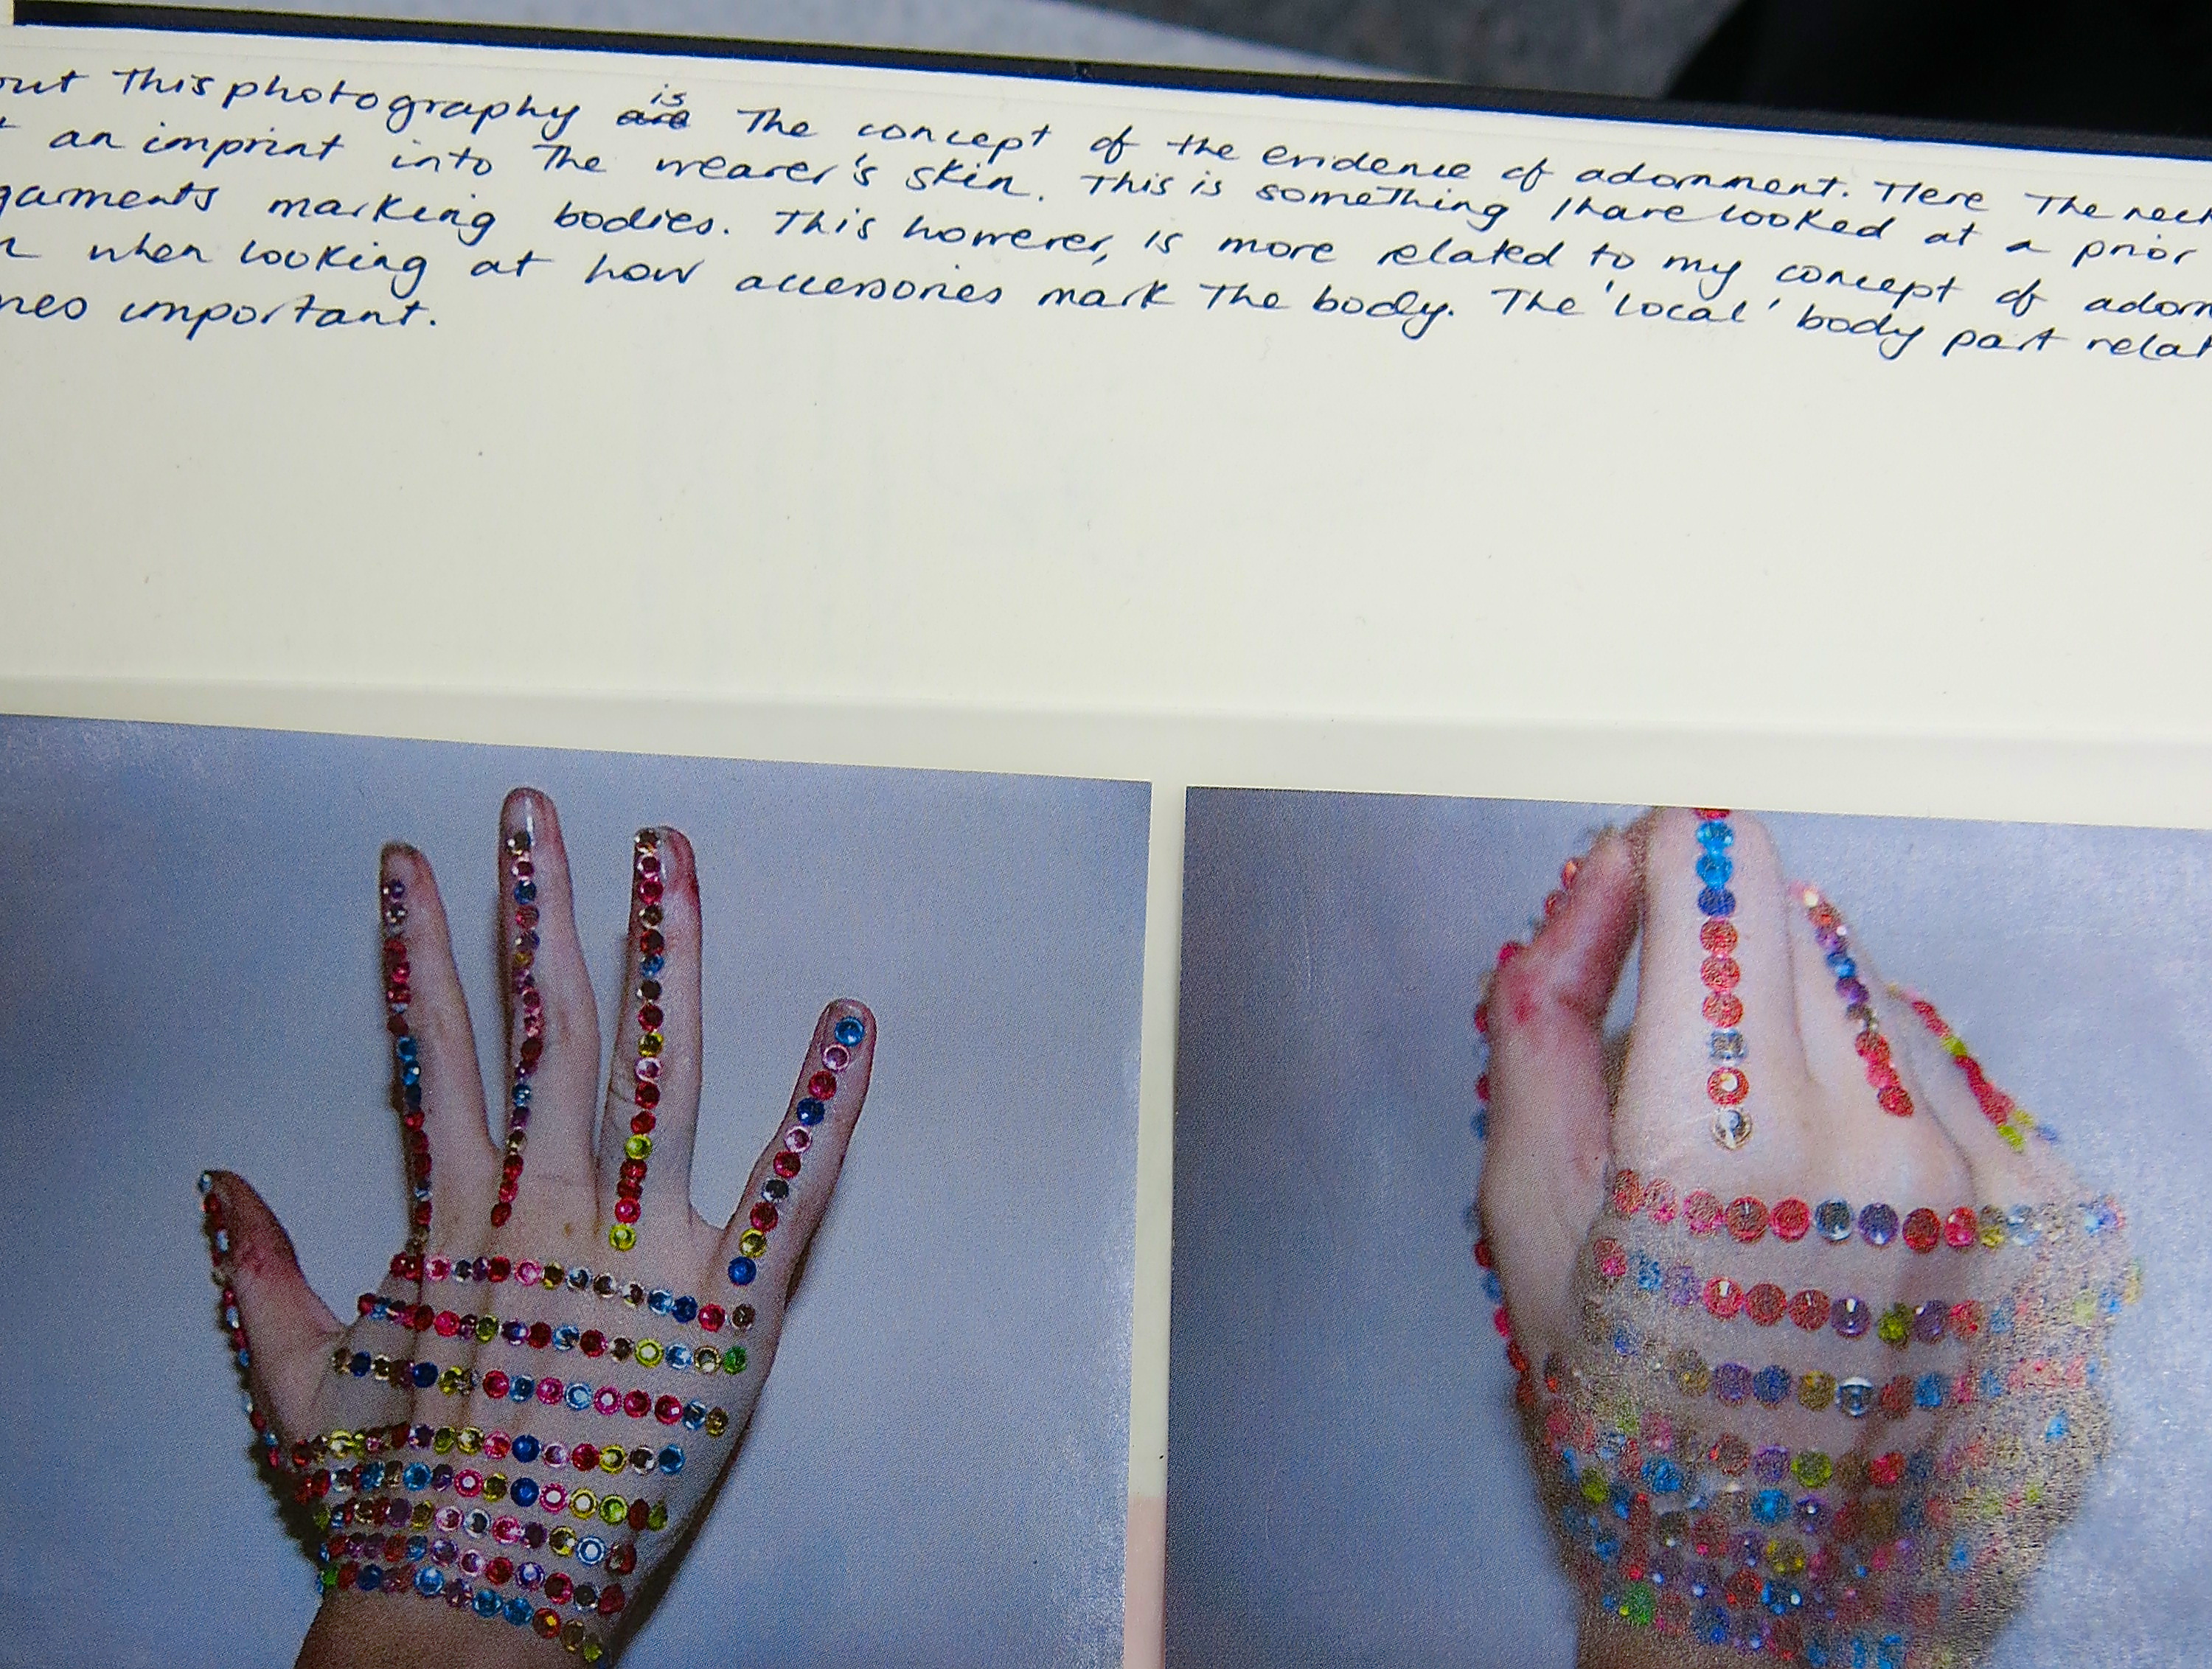 This photography are is The concept of the evidence of adornment. Here The
an imprint into The wearer's skin. This is something I have looked at a prior
garments marking bodies. This however, is more related to my concept of
when looking at how accessories mark The body. The 'local' body part
important.